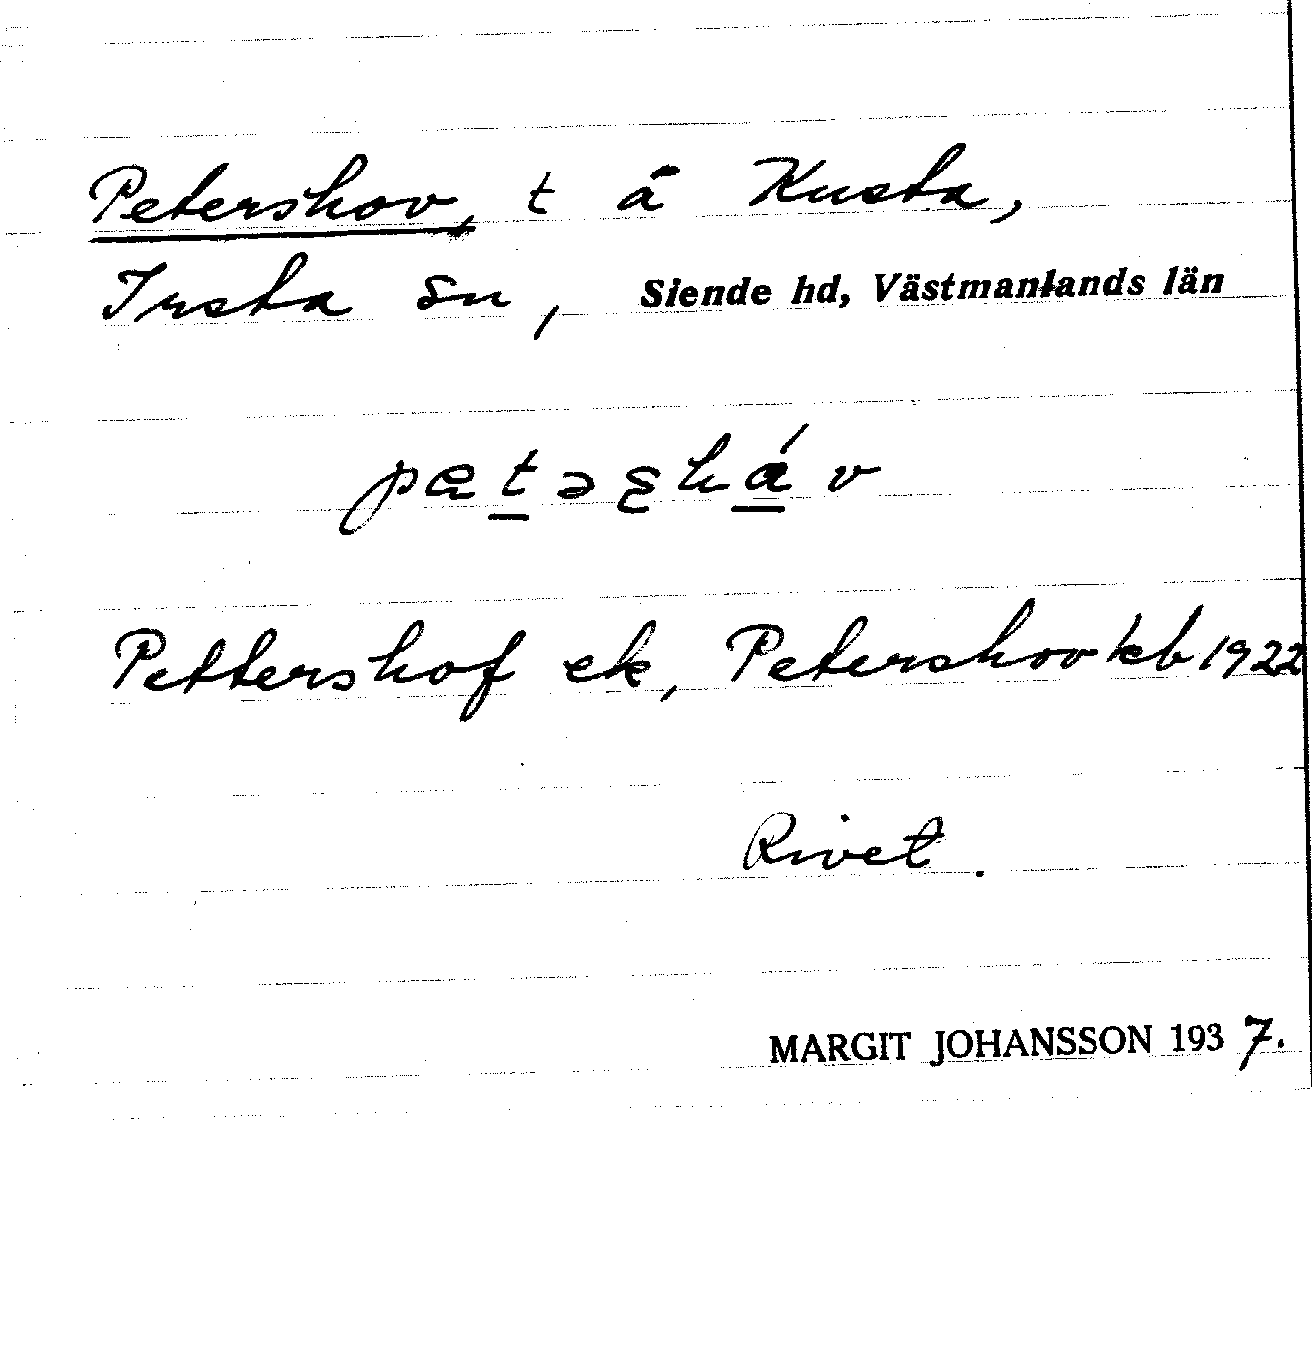 Petershov, t å Kusta,
Irsta sn, Siende hd, Västmanlands län
pætəşháv
Pettershof ek, Petershov kb 1922
Rivet.
MARGIT JOHANSSON 1937.